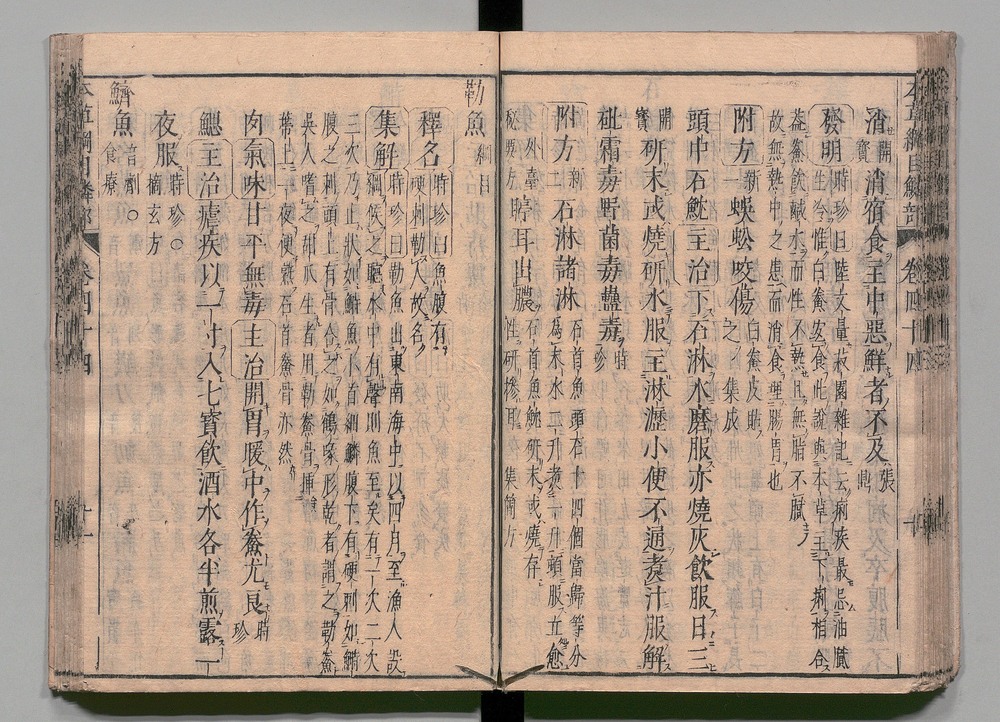 本草綱目鱗部 卷四十四 十
消宿食主中惡鮮者不及張鼎
發明時珍曰陸文量菽園雜記云痢疾最忌油膩
生冷惟白鯗宜食此說與本草主下痢相合
蓋鯗飲鹹水而性不熱且無脂不膩
故無熱中之患而消食理腸胃也
附方新一蜈蚣咬傷白鯗皮貼之集成
頭中石魫主治下石淋水磨服亦燒灰飲服日三
開寶研末或燒研水服主淋瀝小便不通煮汁服解
砒霜毒野菌毒蠱毒時珍
附方新二石淋諸淋石首魚頭石十四個當歸等分
為末水二升煮一升頓服立愈
外臺秘要方聤耳出膿石首魚魫研末或燒存
性研摻耳集簡方
勒魚綱目
釋名時珍曰魚腹有
硬刺勒人故名
集解時珍曰勒魚出東南海中以四月至漁人設
網候之聽水中有聲則魚至矣有一次二次
三次乃止狀如鰣魚小首細鱗腹下有硬刺如鰣
腹之刺頭上有骨合之如鶴喙形乾者謂之勒鯗
吳人嗜之甜瓜生者用勒鯗骨插
蒂上一夜便熟石首鯗骨亦然
肉氣味甘平無毒主治開胃暖中作鯗尤良時珍
鰓主治瘧疾以一寸入七寶飲酒水各半煎露一
夜服時珍○摘玄方
鱭魚音劑○食療
本草綱目鱗部 卷四十四 十一